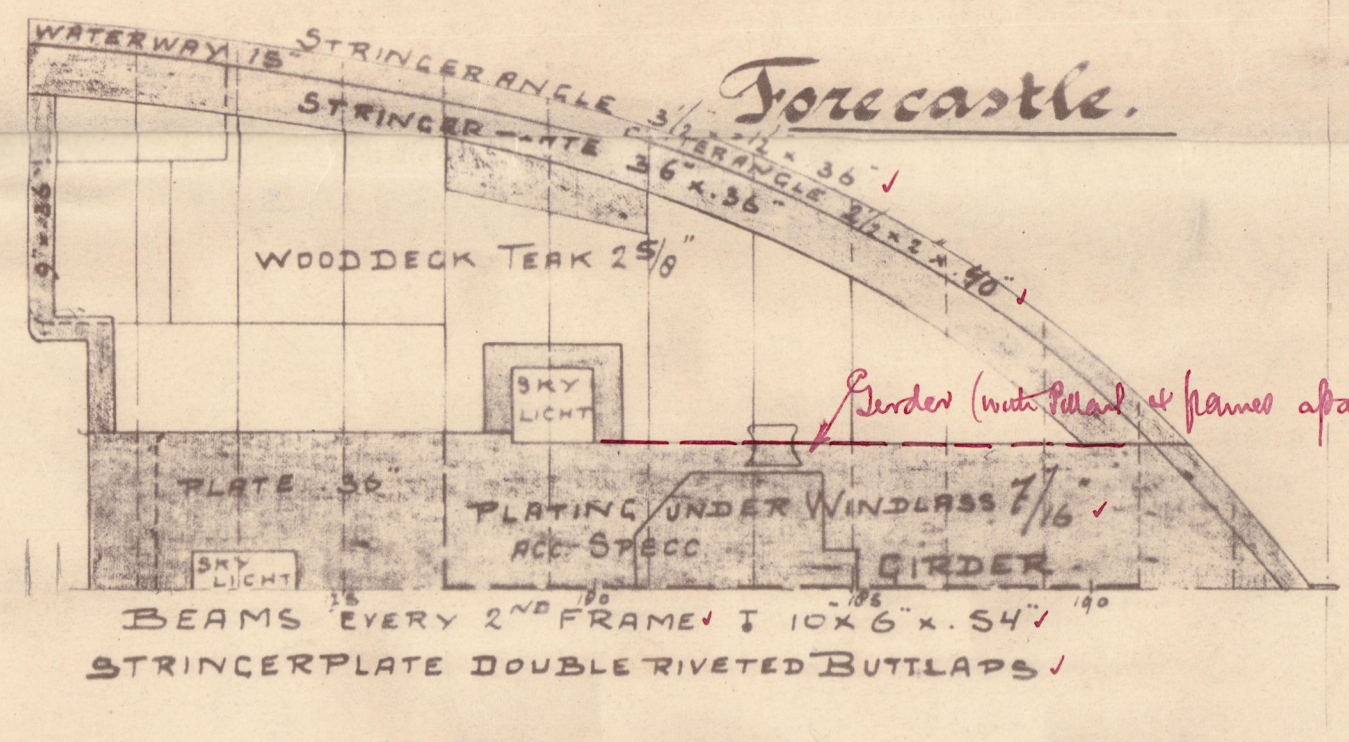 Forecastle.
WATERWAY 15"
STRINGER ANGLE 3 1/2" x 3 1/2" x .36"
STRINGER PLATE 36" x .36"
ANGLE 2 1/2" x 2" x .40"
9" x .36"
WOOD DECK TEAK 2 5/8"
SKY
LIGHT
Girder (with Pillars & frames
PLATE .36"
PLATING UNDER WINDLASS 7/16"
ACC. SPECC
GIRDER
SKY
LIGHT
180 185 190
BEAMS EVERY 2ND FRAME I 10" x 6" x .54"
STRINGERPLATE DOUBLE RIVETED BUTTLAPS